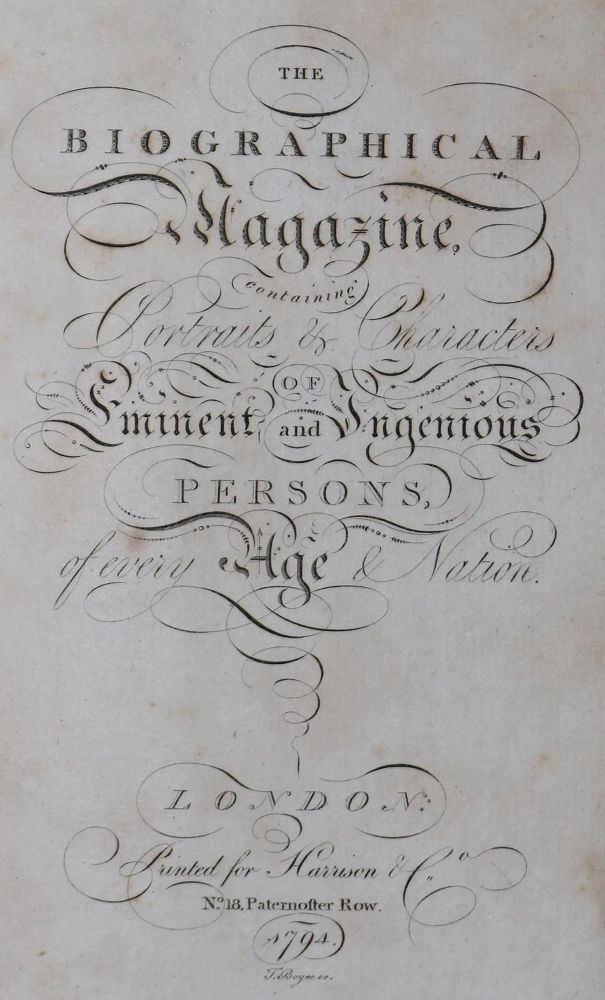 THE
BIOGRAPHICAL
Magazine,
containing
Portraits & Characters
OF
Eminent and Ingenious
PERSONS,
of every Age & Nation.
LONDON:
Printed for Harrison & Co.
No. 18, Paternoſter Row.
1794.
sc.